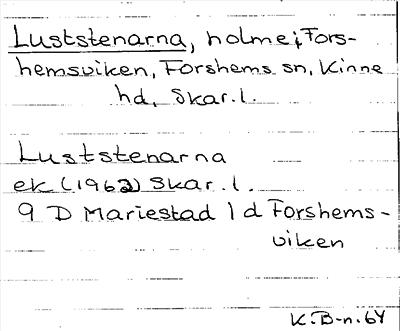 Luststenarna, holme i Fors-
hemsviken, Forshems sn, Kinne
hd, Skar.l.
Luststenarna
ek (1962) Skar.l.
9 D Mariestad 1 d Forshems-
viken
K.B-n.64